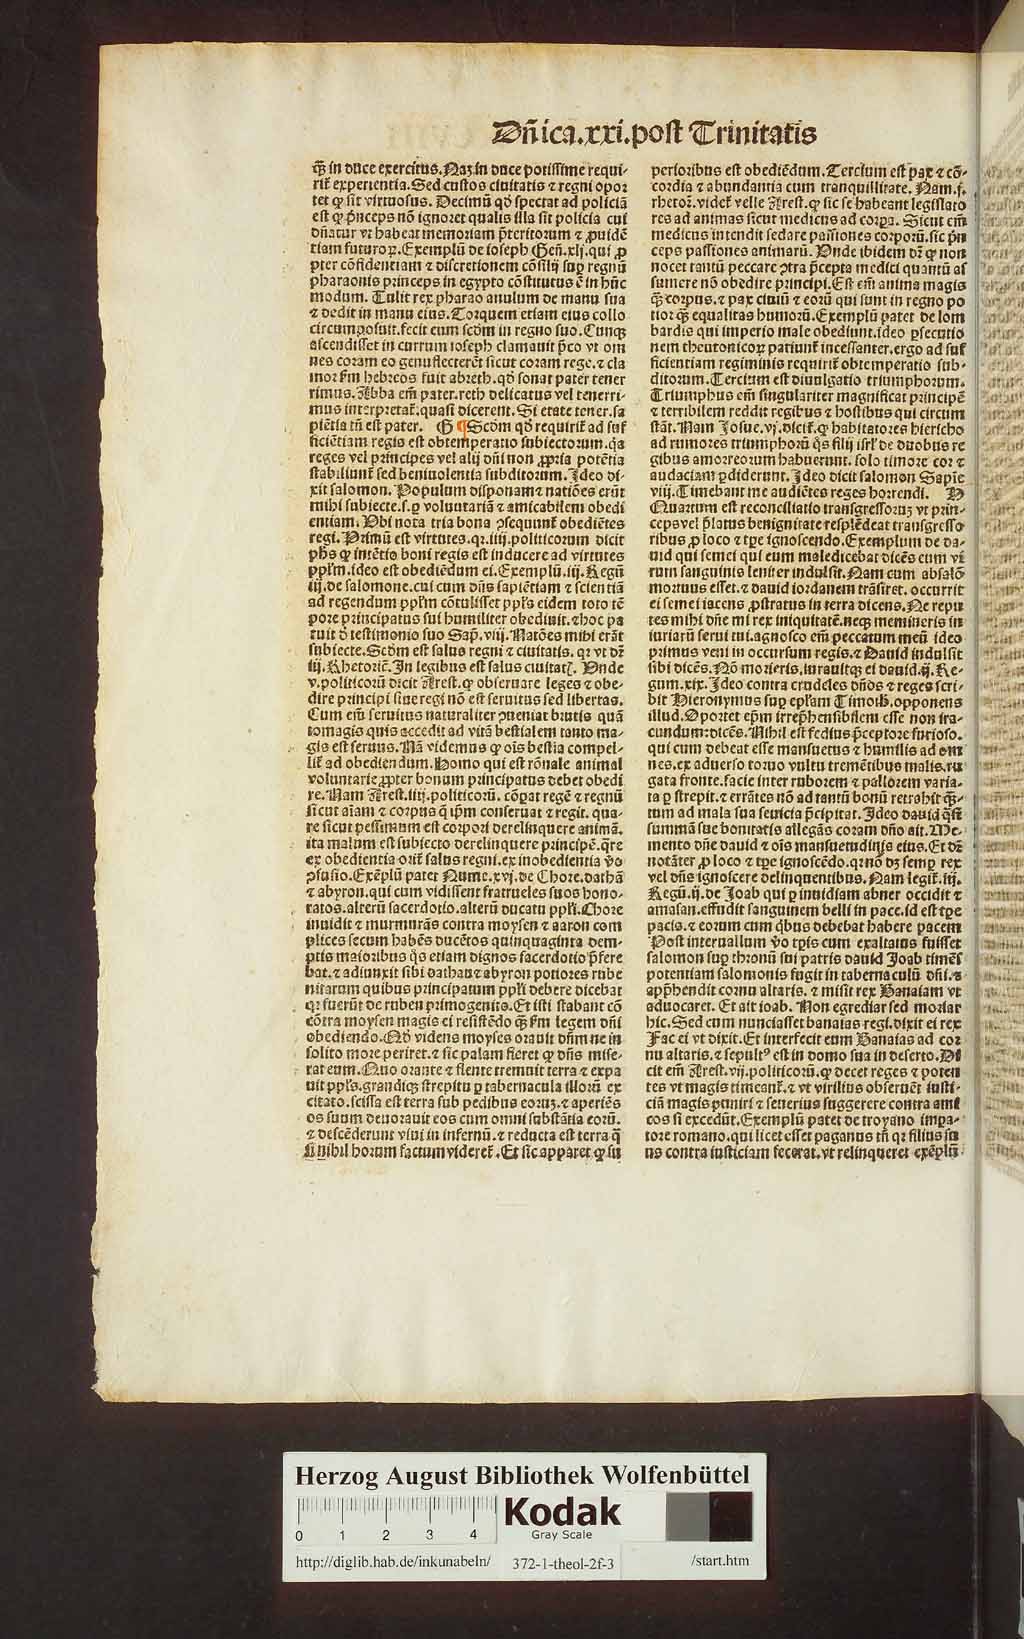 Dñica.xxi.post Trinitatis
q̄ in duce exercitus. Naz in duce potissime requi-
rit̄ experientia. Sed custos ciuitatis ⁊ regni opor
tet ꝙ sit virtuosus. Decimū qd̄ spectat ad policiā
est ꝙ p̄nceps nō ignoret qualis illa sit policia cui
dn̄atur vt habeat memoriam p̄teritorum ⁊ ꝓuidē
tiam futuroꝝ. Exemplū de ioseph Gen̄.xlj. qui ꝓ
pter cōfidentiam ⁊ discretionem cōsilij suꝑ regnū
pharaonis princeps in egypto cōstitutus ē in hūc
modum. Tulit rex pharao anulum de manu sua
⁊ dedit in manu eius. Torquem etiam eius collo
circumposuit. fecit eum scd̄m in regno suo. Cunqꝫ
ascendisset in currum ioseph clamauit p̄co vt om
nes coram eo genuflecterēt sicut coram rege. ⁊ cla
mor fm̄ hebreos fuit abreth. qd̄ sonat pater tener
rimus. Abba em̄ pater. reth delicatus vel tenerri-
mus interpretat̄. quasi dicerent. Si etate tener. sa
piētia tn̄ est pater. G ¶ Scd̄m qd̄ requirit̄ ad suf
ficiētiam regis est obtemperatio subiectorum. qa
reges vel principes vel alij dn̄i non ꝓpria potētia
stabiliunt̄ sed beniuolentia subditorum. Ideo di-
xit salomon. Populum disponam ⁊ natiōes erūt
mihi subiecte. s. ꝑ voluntariā ⁊ amicabilem obedi
entiam. Vbi nota tria bona ꝯsequunt̄ obediētes
regi. Primū est virtutes. qr.iiij. politicorum dicit
ph̄s ꝙ intētio boni regis est inducere ad virtutes
pplm̄. ideo est obediēdum ei. Exemplū.iij. Regū
iij. de salomone. cui cum dn̄s sapiētiam ⁊ scientiā
ad regendum pplm̄ cōtulisset ppls̄ eidem toto tē
pore principatus sui humiliter obediuit. ⁊ hoc pa
tuit ꝺ testimonio suo Sap̄. viij. Natōes mihi erāt
subiecte. Scd̄m est salus regni ⁊ ciuitatis. qr vt dr̄
iij. Rhetorice. In legibus est salus ciuitatꝭ. Unde
v. politicorū dicit Arest. ꝙ obseruare leges ⁊ obe-
dire principi siue regi nō est seruitus sed libertas.
Cum em̄ seruitus naturaliter ꝯueniat brutis quā
tomagis quis accedit ad vitā bestialem tanto ma-
gis est seruus. Nā videmus ꝙ oīs bestia compel-
lit̄ ad obediendum. Homo qui est rōnale animal
voluntarie ꝓpter bonum principatus debet obedi
re. Nam Arest. iiij. politicorū. cōꝑat regē ⁊ regnū
sicut aīam ⁊ corpus q̄ ip̄m conseruat ⁊ regit. qua-
re sicut pessimum est corpori derelinquere animā.
ita malum est subiecto derelinquere principē. q̄re
ex obedientia orit̄ salus regni. ex inobedientia v̄o
ꝯfusio. Exēplū patet Nume.xvj. de Chore. dathā
⁊ abyron. qui cum vidissent fratrueles suos hono-
ratos. alterū sacerdotio. alterū ducatu ppli̅. Chore
inuidit ⁊ murmurās contra moysen ⁊ aaron com
plices secum habēs ducētos quinquaginta dem-
ptis maioribus qs̄ etiam dignos sacerdotio p̄fere
bat. ⁊ adiunxit sibi dathan ⁊ abyron potiores rube
nitarum quibus principatum ppli̅ debere dicebat
qr fuerūt de ruben primogenito. Et isti stabant cō
cōtra moysen magis ei resistēdo q̄ fm̄ legem dn̄i
obediendo. Qd̄ videns moyses orauit dn̄m ne in
solito more periret. ⁊ sic palam fieret ꝙ dn̄s mise-
rat eum. Quo orante ⁊ flente tremuit terra ⁊ expa
uit ppls̄. grandiqꝫ strepitu ꝑ tabernacula illorū ex
citato. scissa est terra sub pedibus eorūꝫ. ⁊ aperiēs
os suum deuorauit eos cum omni substātia eorū.
⁊ descēderunt viui in infernū. ⁊ reducta est terra q̄
si nihil horum factum videret̄. Et sic apparet ꝙ su
perioribus est obediēdum. Tercium est pax ⁊ cō-
cordia ⁊ abundantia cum tranquillitate. Nam.f.
rhetor. videt̄ velle Arest. ꝙ sic se habeant legislato
res ad animas sicut medicus ad corpa. Sicut em̄
medicus intendit sedare passiones corporū. sic p̄n
ceps passiones animarū. Unde ibidem dr̄ ꝙ non
nocet tantū peccare ꝯtra p̄cepta medici quantū as
sumere nō obedire principi. Est em̄ anima magis
q̄ corpus. ⁊ pax ciuiū ⁊ eorū qui sunt in regno po
tior q̄ equalitas humorū. Exemplū patet de lom
bardis qui imperio male obediunt. ideo ꝑsecutio
nem theutonicoꝝ patiunt̄ incessanter. ergo ad suf
ficientiam regiminis requirit̄ obtemperatio sub-
ditorum. Tercium est diuulgatio triumphorum.
Triumphus em̄ singulariter magnificat principē
⁊ terribilem reddit regibus ⁊ hostibus qui circum
stāt. Nam Josue. vj. dicit̄. ꝙ habitatores hiericho
ad rumores triumphorū qs̄ filij isrl̄ de duobus re
gibus amorreorum habuerunt. solo timore cor ⁊
audaciam ꝑdiderunt. Ideo dicit salomon Sapie̅
viij. Timebant me audiētes reges horrendi. H
Quartum est reconciliatio transgressoruꝫ vt prin-
ceps vel p̄latus benignitate resplēdeat transgresso
ribus ꝓ loco ⁊ tp̄e ignoscendo. Exemplum de da-
uid qui semei qui eum maledicebat dicēs eum vi
rum sanguinis leniter indulsit. Nam cum absalō
mortuus esset. ⁊ dauid iordanem trāsiret. occurrit
ei semei iacens ꝓstratus in terra dicens. Ne repu
tes mihi dn̄e mi rex iniquitatē. neqꝫ memineris in
iuriarū serui tui. agnosco em̄ peccatum meū ideo
primus veni in occursum regis. ⁊ Dauid indulsit
sibi dicēs. Nō morieris. iurauitqꝫ ei dauid. ij. Re-
gum.xix. Ideo contra crudeles dn̄os ⁊ reges scri-
bit Hieronymus suꝑ epl̄am Timoth̄. opponens
illud. Oportet ep̄m irrep̄hensibilem esse non ira-
cundum: dicēs. Nihil est fedius p̄ceptore furioso.
qui cum debeat esse mansuetus ⁊ humilis ad om
nes. ex aduerso toruo vultu tremētibus malis. ru
gata fronte. facie inter ruborem ⁊ pallorem varia-
ta ꝑ strepit. ⁊ errātes nō ad tantū bonū retrahit q̄-
tum ad mala sua seuicia p̄cipitat. Ideo dauid q̄si
summā sue bonitatis allegās coram dn̄o ait. Me-
mento dn̄e dauid ⁊ oīs mansuetudinis eius. Et dr̄
notāter ꝓ loco ⁊ tp̄e ignoscēdo. qr nō dꝫ semꝑ rex
vel dn̄s ignoscere delinquentibus. Nam legit̄. iij.
Regū. ij. de Joab qui ꝑ inuidiam abner occidit ⁊
amasan. effudit sanguinem belli in pace. id est tp̄e
pacis. ⁊ eorum cum qb̄us debebat habere pacem
Post interuallum v̄o tp̄is cum exaltatus fuisset
salomon suꝑ thronū sui patris dauid Joab timēs
potentiam salomonis fugit in tabernaculū dn̄i. ⁊
app̄hendit cornu altaris. ⁊ misit rex Banaiam vt
aduocaret. Et ait ioab. Non egrediar sed moriar
hic. Sed cum nunciasset banaias regi. dixit ei rex
Fac ei vt dixit. Et interfecit eum Banaias ad cor
nu altaris. ⁊ sepultꝰ est in domo sua in deserto. Di
cit em̄ Arest. vij. politicorū. ꝙ decet reges ⁊ poten
tes vt magis timeant̄. ⁊ vt virilius obseruēt iusti-
ciā magis puniri ⁊ seuerius suggerere contra ami
cos si excedūt. Exemplū patet de troyano impa-
tore romano. qui licet esset paganus tn̄ qr filius su
us contra iusticiam fecerat. vt relinqueret exēplū
Herzog August Bibliothek Wolfenbüttel
0 1 2 3 4
Kodak
Gray Scale
http://diglib.hab.de/inkunabeln/ 372-1-theol-2f-3 /start.htm